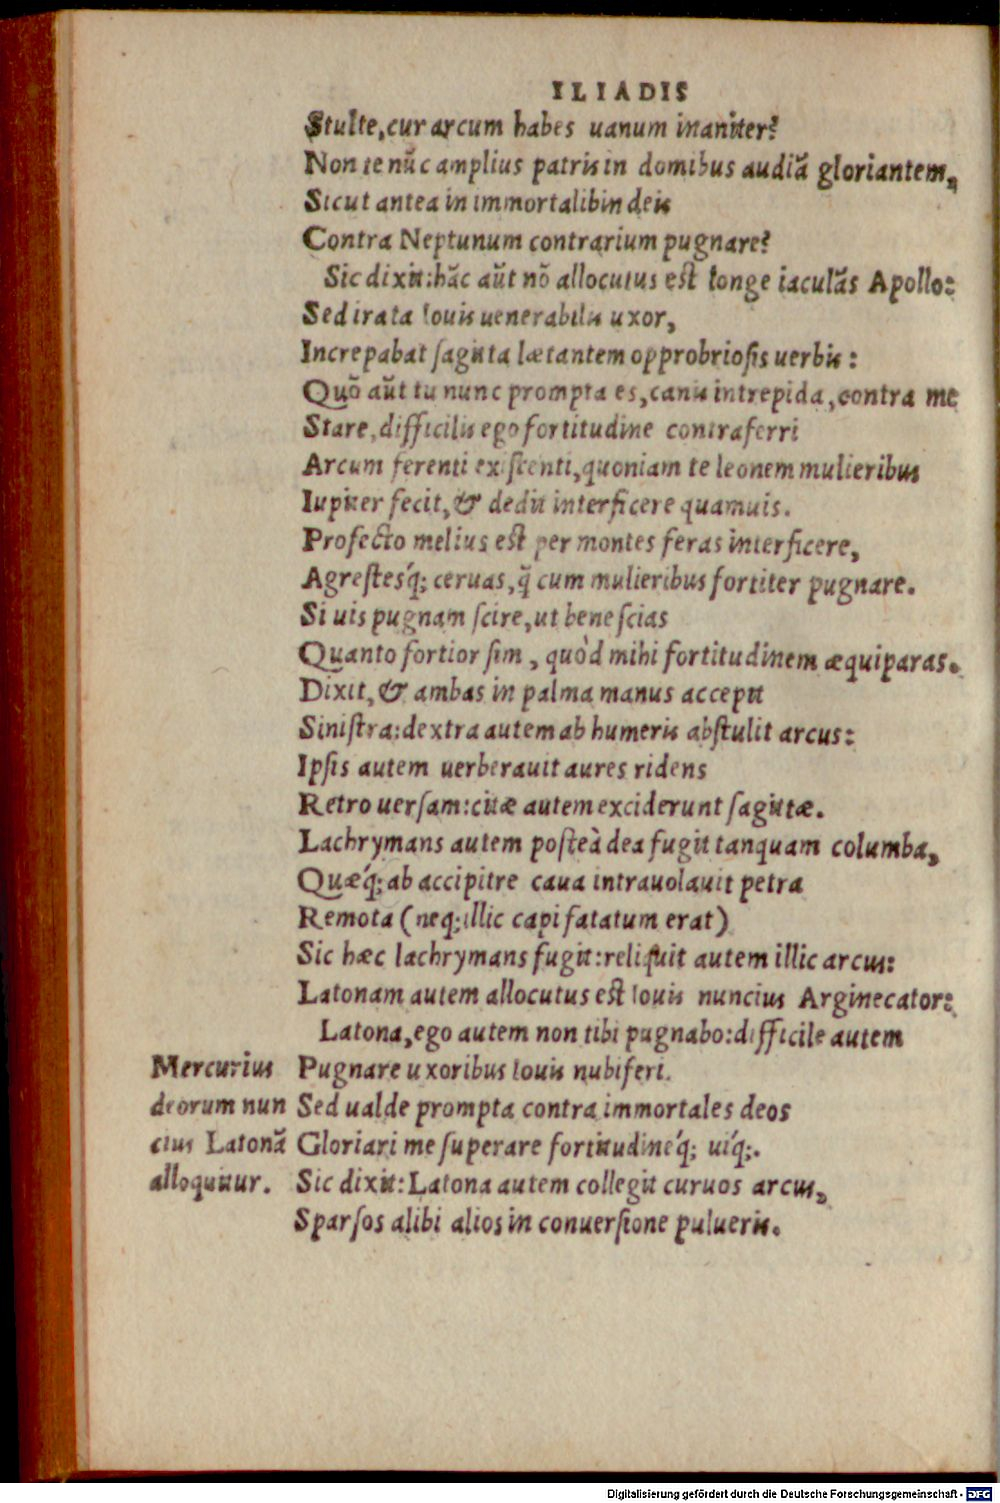 ILIADIS
Stulte, cur arcum habes uanum inaniter?
Non te nūc amplius patris in domibus audiā gloriantem,
Sicut antea in immortalibin deis
Contra Neptunum contrarium pugnare?
Sic dixit: hāc aūt nō allocutus est longe iaculās Apollo:
Sed irata Iouis uenerabilis uxor,
Increpabat sagitta lætantem opprobriosis uerbis:
Quō aūt tu nunc prompta es, canis intrepida, contra me
Stare, difficilis ego fortitudine contraferri
Arcum ferenti existenti, quoniam te leonem mulieribus
Iupiter fecit, & dedit interficere quamuis.
Profecto melius est per montes feras interficere,
Agrestesq́; ceruas, q̄ cum mulieribus fortiter pugnare.
Si uis pugnam scire, ut bene scias
Quanto fortior sim, quòd mihi fortitudinem æquiparas.
Dixit, & ambas in palma manus accepit
Sinistra: dextra autem ab humeris abstulit arcus:
Ipsis autem uerberauit aures ridens
Retro uersam: citæ autem exciderunt sagittæ.
Lachrymans autem posteà dea fugit tanquam columba,
Quæq́; ab accipitre caua intrauolauit petra
Remota (neq; illic capi fatatum erat)
Sic hæc lachrymans fugit: reliquit autem illic arcus:
Latonam autem allocutus est Iouis nuncius Arginecator:
Latona, ego autem non tibi pugnabo: difficile autem
Mercurius Pugnare uxoribus Iouis nubiferi.
deorum nun Sed ualde prompta contra immortales deos
cius Latonā Gloriari me superare fortitudineq́; uiq́;.
alloquitur. Sic dixit: Latona autem collegit curuos arcus,
Sparsos alibi alios in conuersione pulueris.
Digitalisierung gefördert durch die Deutsche Forschungsgemeinschaft - DFG